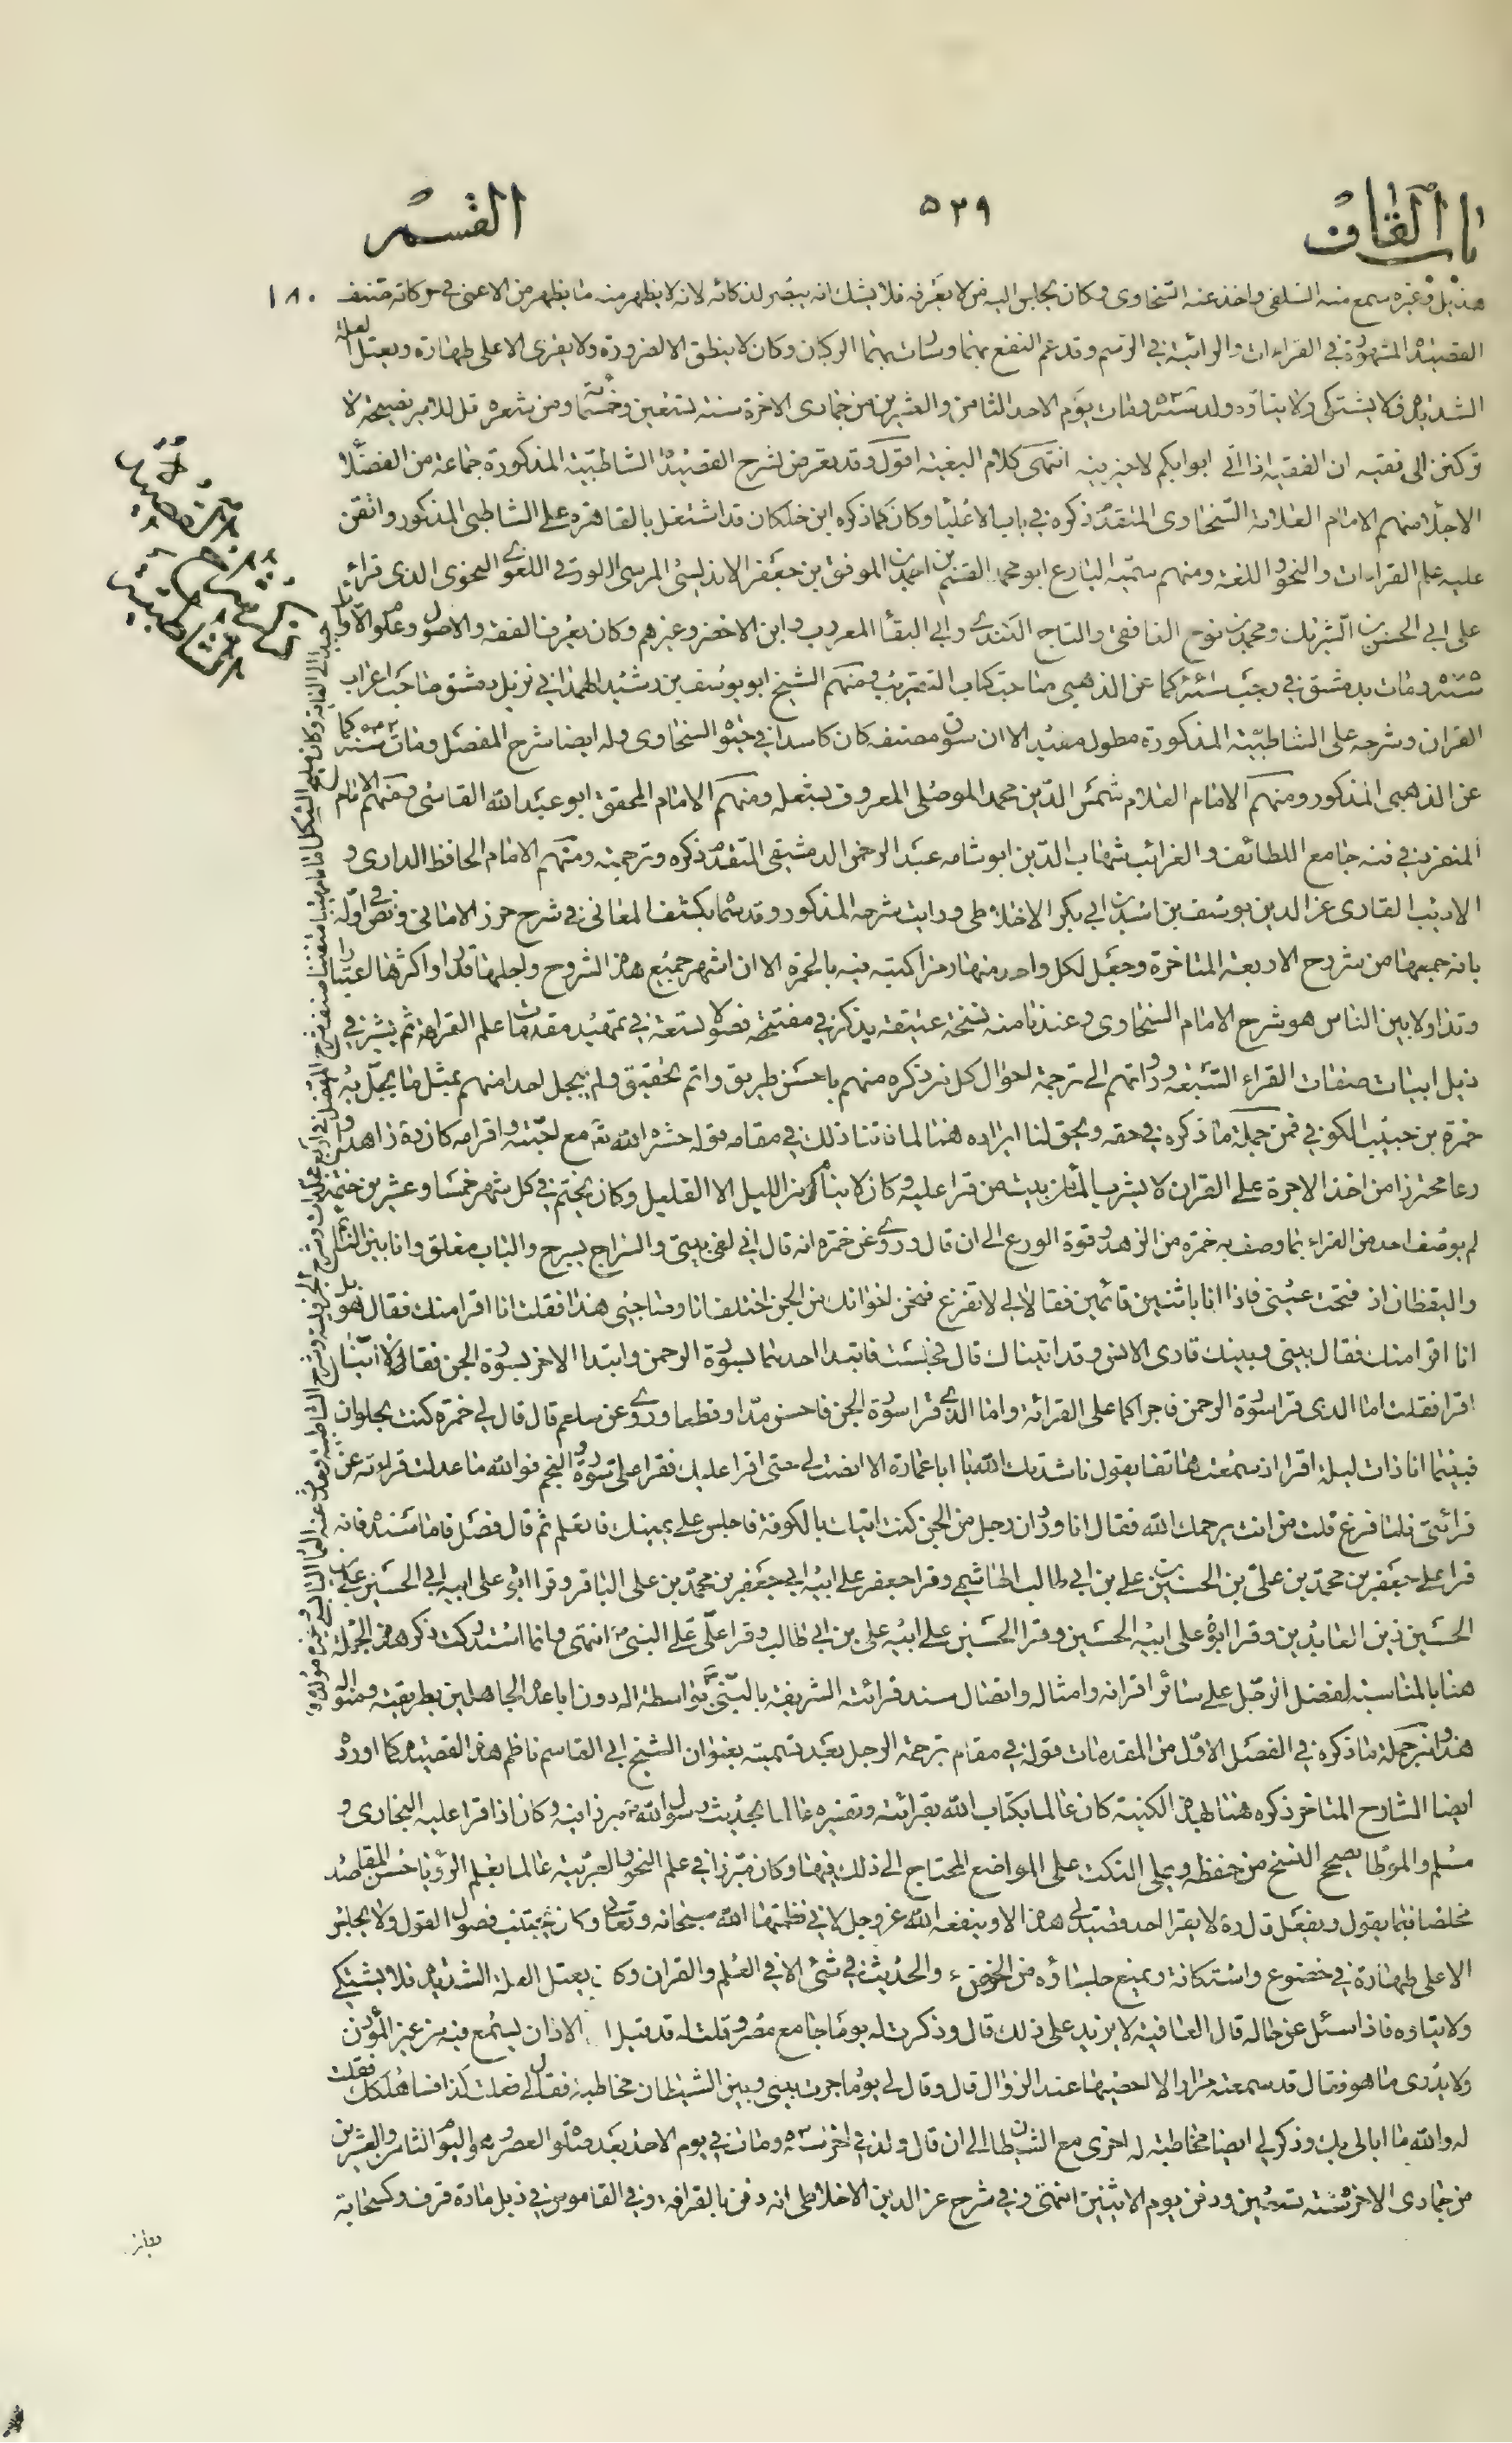 باب القاف
٥٢٩
القسم
هذيل وغيره سمع منه السلفى واخذ عنه السخاوى وكان يجلس اليه من لا يعرفه فلا يشك انه يبصر لذكائه لانه لا يظهر منه ما يظهر من الاعمى فى حركاته صنف
القصيدة المشهورة فى القراءات والرائية فى الرسم وقد عم النفع بهما وسارت بهما الركبان وكان لا ينطق الا لضرورة ولا يقرى الا على طهارة ويعتل العلة
الشديدة فلا يشتكى ولا يتاوه ولد سنة ومات يوم الاحد الثامن والعشرين من جمادى الاخرة سنة تسعين وخمسمائة ومن شعره قل للامير نصيحة لا
تركنن الى فقيه ان الفقيه اذا اتى ابوابكم لا خير فيه انتهى كلام البغية اقول وقد تعرض لشرح القصيدة الشاطبية المذكورة جماعة من الفضلاء
الاجلاء منهم الامام العلامة السخاوى المتقدم ذكره فى باب الاعليا وكان كما ذكره ابن خلكان قد اشتغل بالقاهرة على الشاطبى المذكور واتقن
عليه علم القراءات والنحو واللغة ومنهم سميه البارع ابو محمد القسم بن احمد بن الموفق بن جعفر الاندلسى المرسى اللورقى اللغوى النحوى الذى قرا
على ابى الحسن بن الشريك ومحمد بن نوح الغافقى والتاج الكندى وابى البقاء المعروف وابن الاخضر وغيرهم وكان يعرف الفقه والاصول وعلوم الاوائل
ومات بدمشق فى رجب كما عن الذهبى صاحب كتاب التقريب ومنهم الشيخ ابو يوسف بن رشيد الهمدانى نزيل دمشق صاحب اعراب
القران وشرحه على الشاطبية المذكورة مطول مفيد الا ان سوق مصنفه كان كاسدا فى جنب السخاوى وله ايضا شرح المفصل ومات سنة كما
عن الذهبى المذكور ومنهم الامام العلام شمس الدين محمد الموصلى المعروف بشعله ومنهم الامام المحقق ابو عبد الله الفاسى ومنهم الامام
المتفرد فى فنه جامع اللطائف والغرائب شهاب الدين ابو شامه عبد الرحمن الدمشقى المتقدم ذكره وترجمته ومنهم الامام الحافظ الدارى و
الاديب القارى عز الدين يوسف بن اسد بن ابى بكر الاخلاطى ورايت شرحه المذكور وقد سماه بكشف المعانى فى شرح حرز الامانى ونص فى اوله
بانه جمعها من شروح الاربعة المتاخرة وجعل لكل واحد منها رمزا كتبه فيه بالحمرة الا ان اشهر جميع هذه الشروح واجلها قدرا واكثرها اعتبارا
وتداولا بين الناس هو شرح الامام السخاوى وعندنا منه نسخة عتيقة يذكر فى مفتتحه فصولا تسعة فى تمهيد مقدمات علم القراءة ثم يشير فى
ذيل ابيات صفات القراء السبعة ورواتهم الى ترجمة احوال كل من ذكره منهم باحسن طريق واتم تحقيق ولم يبجل احدا منهم بمثل ما يبجل به
حمزة بن حبيب الكوفى فمن جملة ما ذكره فى حقه ويحق لنا ايراده هنا لما فاتنا ذلك فى مقامه قوله حشره الله تع مع احبته واقرامه كان زاهدا و
رعا محترزا من اخذ الاجرة على القران لا يشرب الماء من بيت من قرا عليه وكان لا ينام من الليل الا القليل وكان يختم فى كل شهر خمسا وعشرين ختمة
لم يوصف احد من القراء بما وصف به حمزة من الزهد وقوة الورع الى ان قال وروى عن حمزه انه قال انى لفى بيتى والسراج يسرج والباب مغلق وانا بين النائم
واليقظان اذ فتحت عينى فاذا انا باثنين قائمين فقالا لى لا تفزع فنحن اخوانك من الجن اختلفنا انا وصاحبى هذا فقلت انا اقرا منك فقال هو بل
انا اقرا منك فقال بينى وبينك قارى الانس وقد اتيناك قال فجلست فابتدا احدهما بسورة الرحمن وابتدا الاخر بسورة الجن فقالا اينا
اقرا فقلت اما الذى قرا سورة الرحمن فاجراكما على القرائة واما الذى قرا سورة الجن فاحسن مدا وقطعا وروى عن سليم قال قال لى حمزة كنت بحلوان
فبينما انا ذات ليلة اقرا اذ سمعت هاتفا يقول ناشدتك الله يا ابا عمارة الا انصت لى حتى اقرا عليك فقرا على سورة النجم فو الله ما عدلت قراءته عن
قرائتى فلما فرغ قلت من انت يرحمك الله فقال انا وردان رجل من الجن كنت اتيك بالكوفة فاجلس على يمينك فاتعلم ثم قال فصل فاما سنده فانه
قرا على جعفر بن محمد بن على بن الحسين بن على بن ابى طالب الهاشمى وقرا جعفر على ابيه ابى جعفر بن محمد بن على الباقر وقرا ابوه على ابيه ابى الحسين على بن
الحسين زين العابدين وقرا ابوه على ابيه الحسين وقرا الحسين على ابيه على بن ابى طالب وقرا على على النبى ص انتهى وانما استدركت ذكر هذه الجملة
هنا بالمناسبة لفضل الرجل على سائر اقرانه وامثاله واتصال سند قرائته الشريفة بالنبى ص بواسطة اله دون اباعد الجاهلين بطريقته ومنواله
هذا ومن جملة ما ذكره فى الفصل الاول من المقدمات قوله فى مقام ترجمة الرجل بعد تسميته بعنوان الشيخ ابى القاسم ناظم هذه القصيدة كما اورده
ايضا الشارح المتاخر ذكره هنا لهذه الكنية كان عالما بكتاب الله بقرائته وتفسيره عالما بحديث رسول الله ص مبرزا فيه وكان اذا قرا عليه البخارى و
مسلم والموطا يصحح النسخ من حفظه ويملى النكت على المواضع المحتاج الى ذلك فيها وكان مبرزا فى علم النحو والعربية عالما بعلم الرؤيا حسن المقاصد
مخلصا فيما يقول ويفعل قال ره لا يقرا احد قصيدتى هذه الا وينفعه الله عز وجل لانى نظمتها لله سبحانه وتعالى وكان يجتنب فضول القول ولا يجلس
الا على طهارة فى خضوع واستكانة ويمنع جلساؤه من الخوض والحديث فى شئ الا فى العلم والقران وكان يعتل العلة الشديدة فلا يشتكى
ولا يتاوه فاذا سئل عن حاله قال العافية لا يزيد على ذلك قال وذكرت له يوما جامع مصر وقلت له قد قيل ا الاذان يسمع فيه من غير المؤذن
ولا يدرى ما هو فقال قد سمعته مرارا لا احصيها عند الزوال قال وقال لى يوما جرت بينى وبين الشيطان مخاطبة فقال لى فعلت كذا فساهلكك فقلت
له والله ما ابالى بك وذكر لى ايضا مخاطبة له اخرى مع الشيطان الى ان قال ولد فى اخر سنة ومات فى يوم الاحد بعد صلوة العصر وهو اليوم الثامن والعشرين
من جمادى الاخر سنة تسعين ودفن يوم الاثنين انتهى وفى شرح عز الدين الاخلاطى انه دفن بالقرافة وفى القاموس فى ذيل مادة قرف وكسحابة